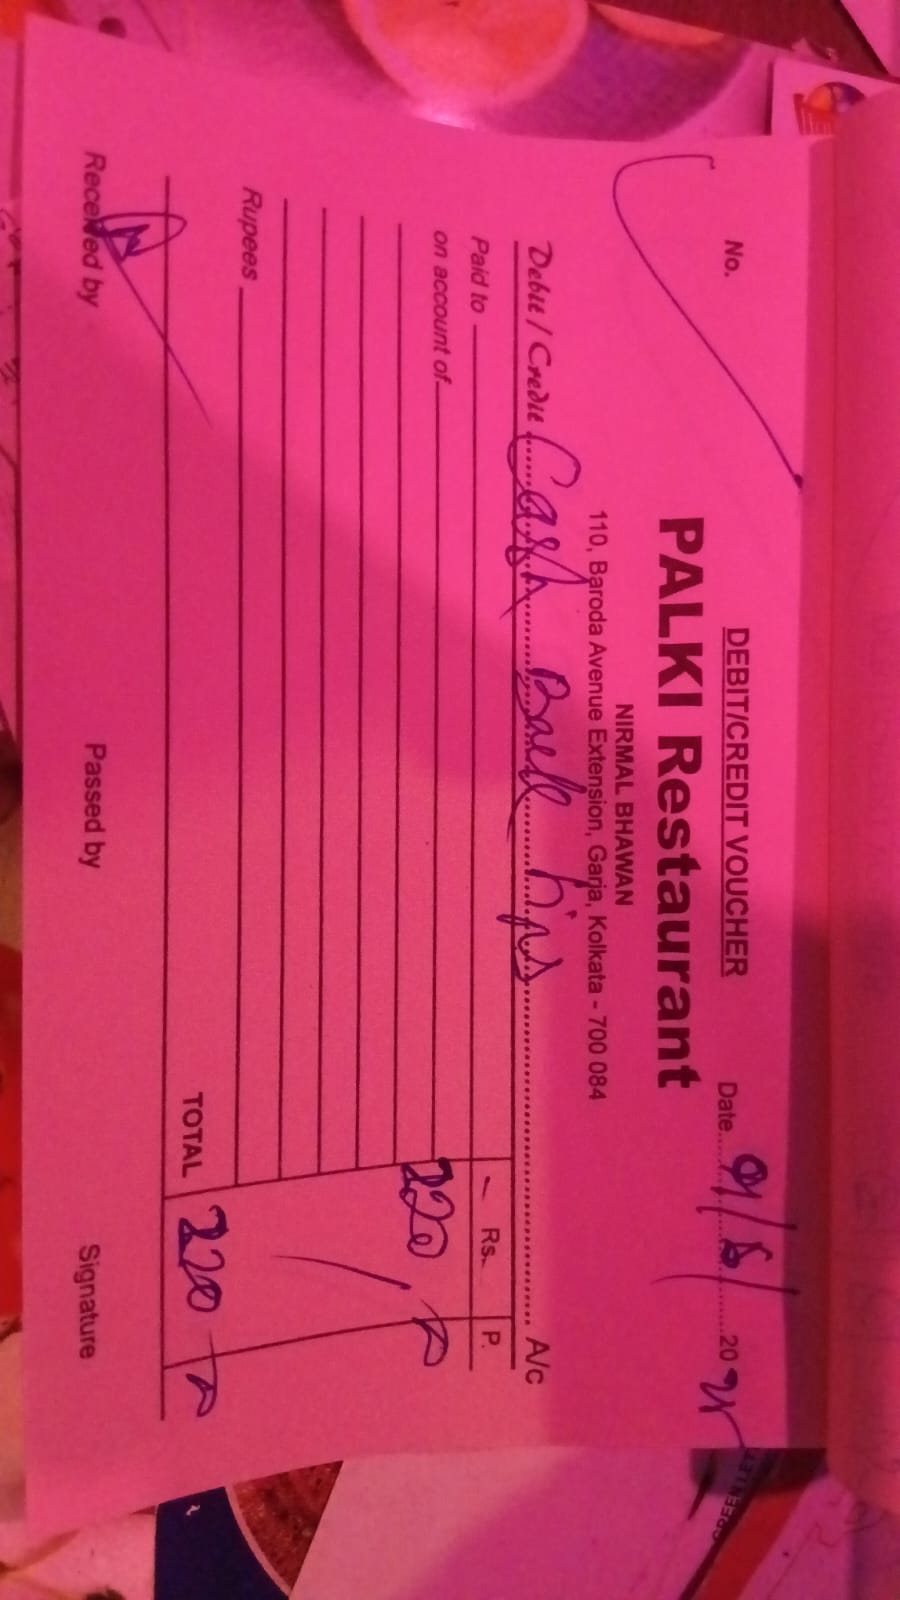 DEBIT/CREDIT VOUCHER
No. Date 20
PALKI Restaurant
NIRMAL BHAWAN
110, Baroda Avenue Extension, Garja, Kolkata - 700 084
Debit / Credit Cash Back A/c
Paid to Rs. P.
on account of 220
Rupees
TOTAL 220
Received by Passed by Signature